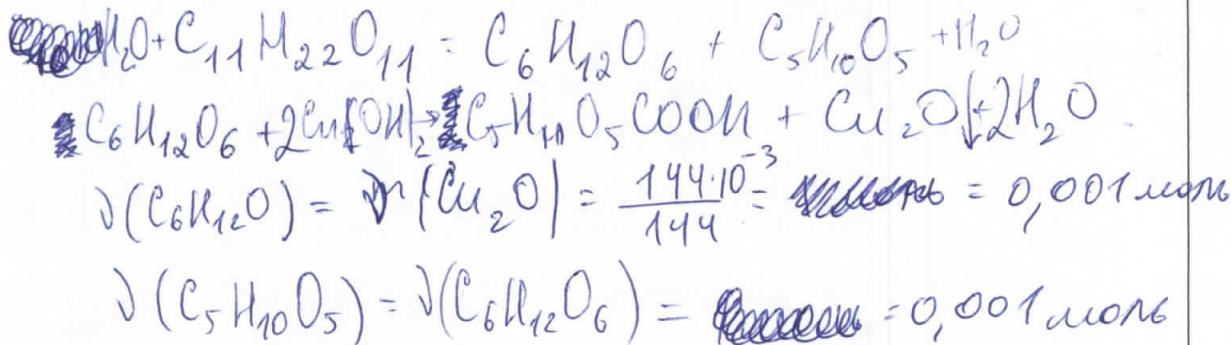 H₂O + C₁₁H₂₂O₁₁ = C₆H₁₂O₆ + C₅H₁₀O₅ + H₂O
C₆H₁₂O₆ + 2Cu(OH)₂ → C₅H₁₁O₅COOH + Cu₂O↓ + 2H₂O
ν(C₆H₁₂O) = ν(Cu₂O) = 144·10⁻³/144 = = 0,001 моль
ν(C₅H₁₀O₅) = ν(C₆H₁₂O₆) = = 0,001 моль